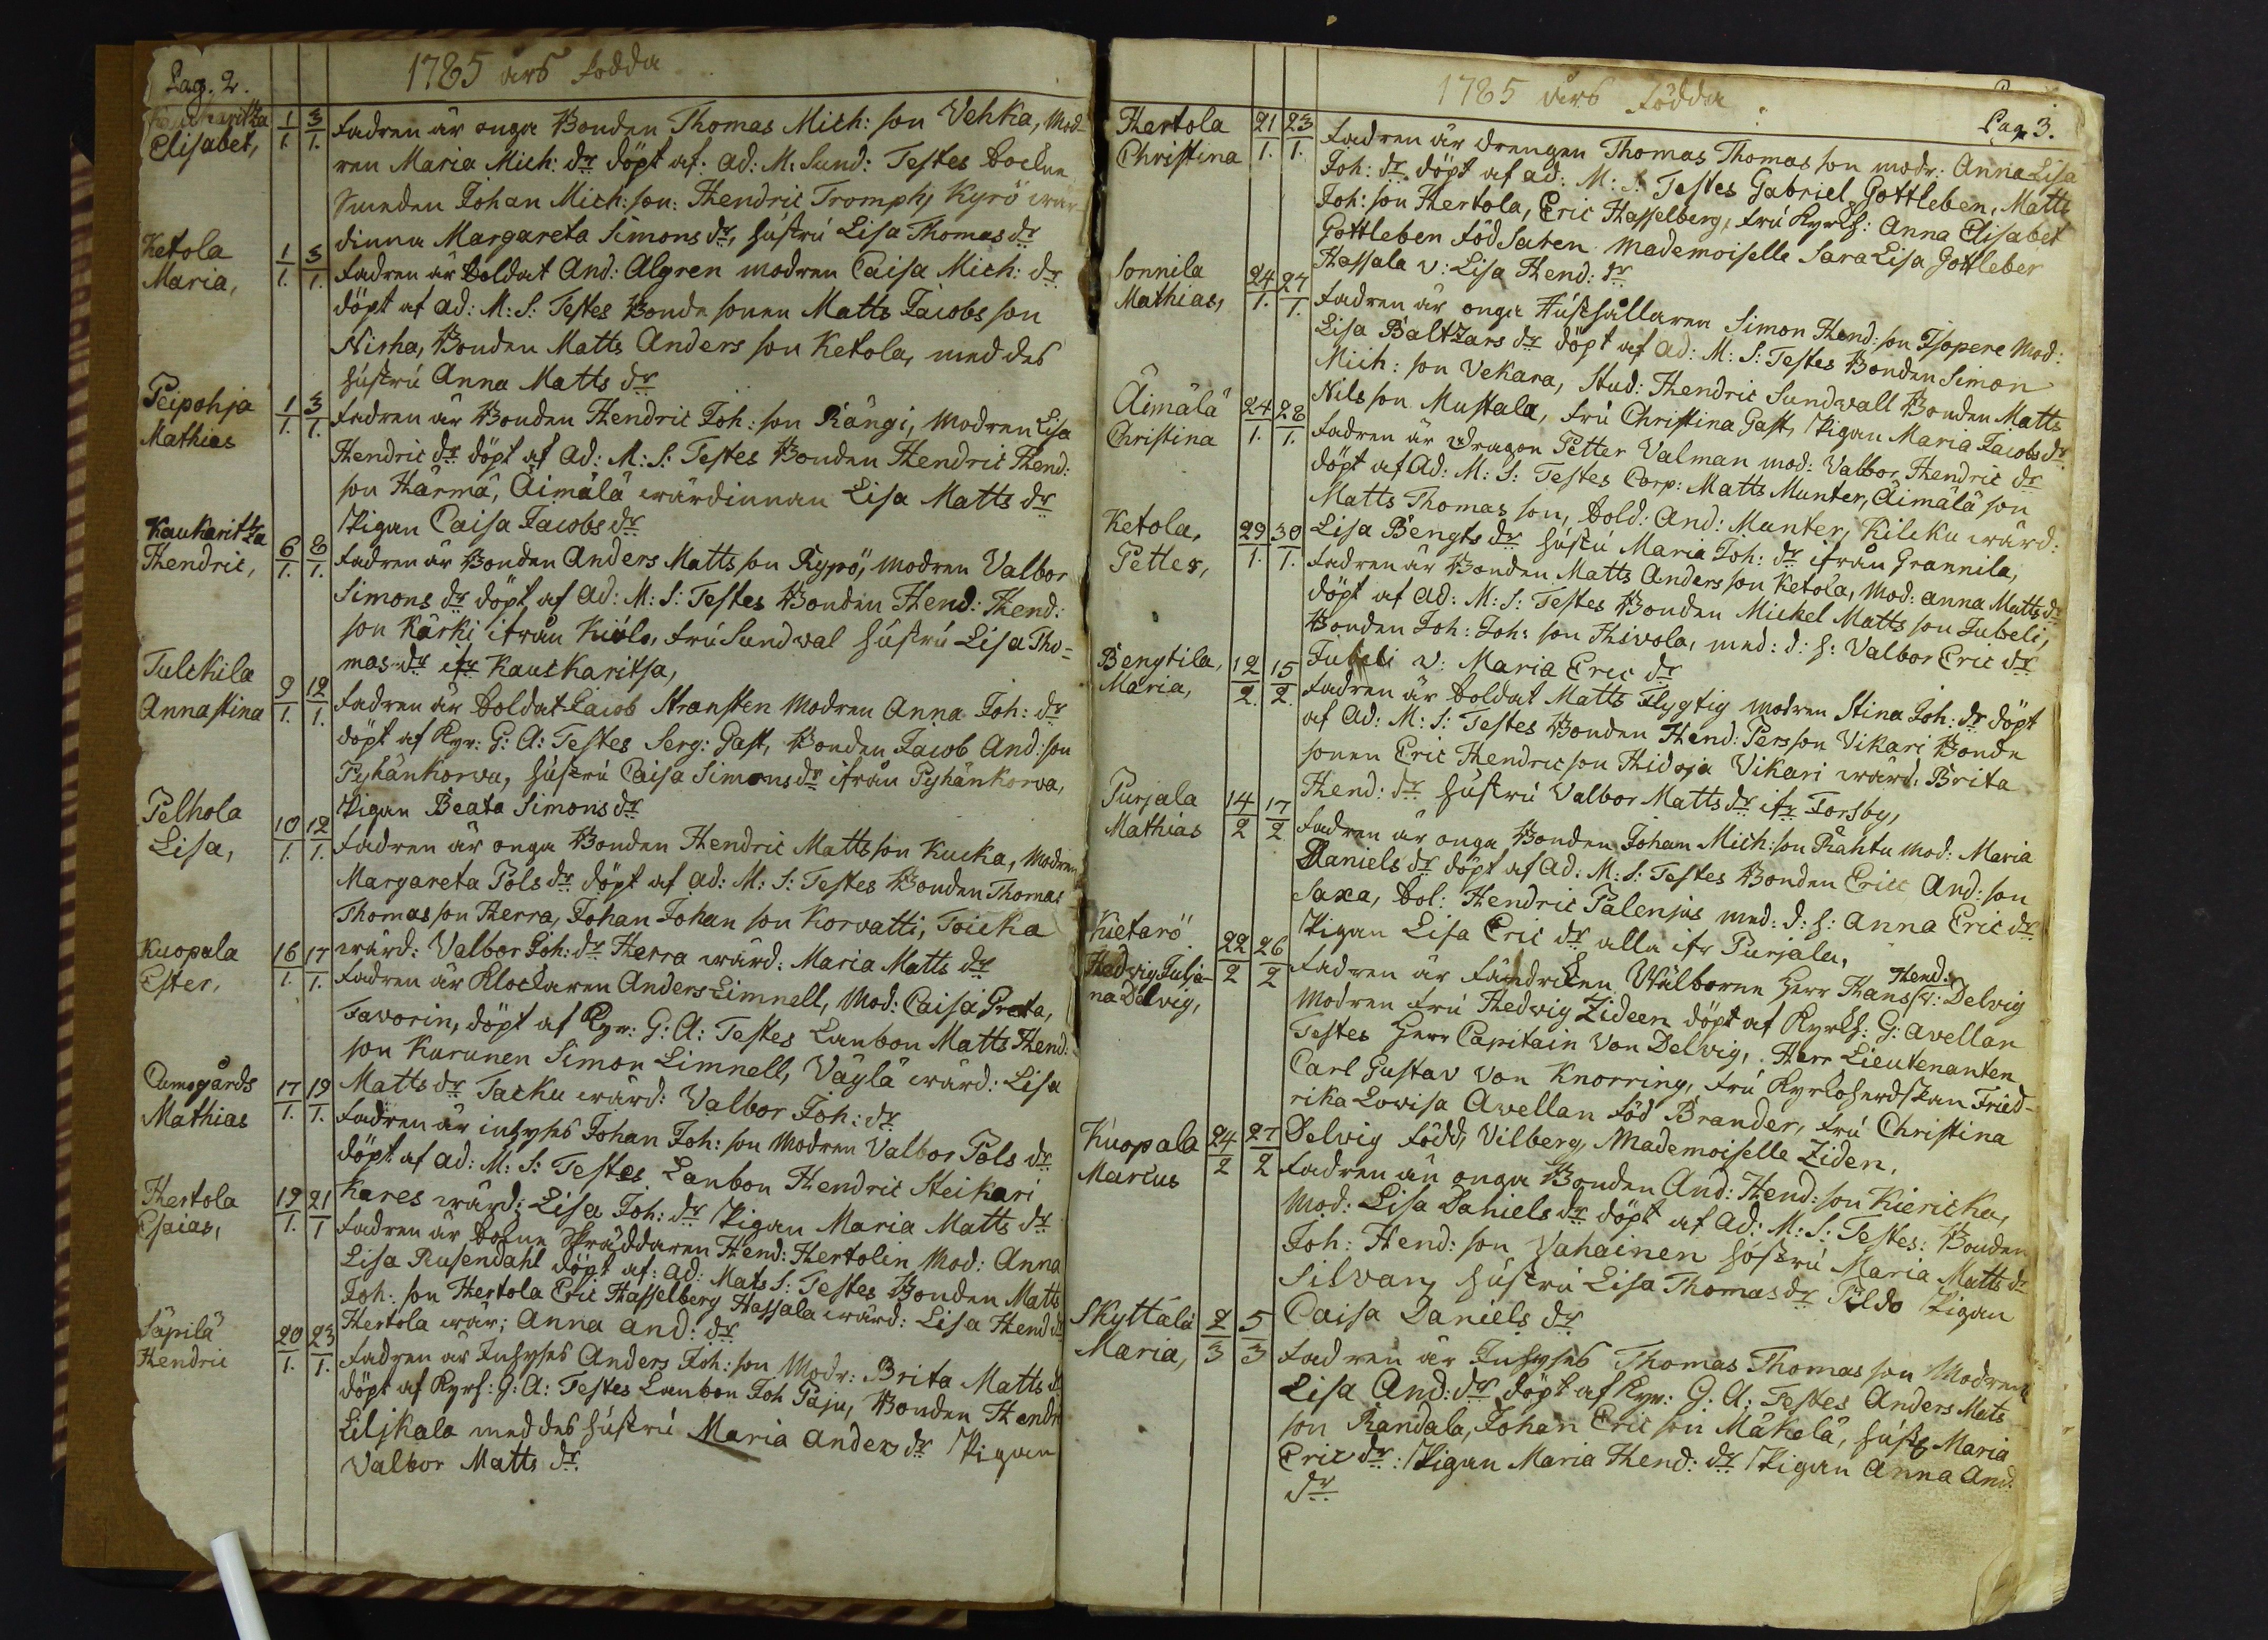 Pag. 2.
1785 års födda
Kaukaritza 1/1. 3/1. Fadren är onga Bonden Thomas Mich: son Vehka, Mod-
Elisabet, ren Maria Mich: dr döpt af. Ad: M: Sund: Testes Sockne
Smeden Johan Mich: son: Hendric Tromph, Kyrö wär-
dinna Margareta Simons dr, hustru Lisa Thomas dr
Ketola 1/1. 3/1. Fadren är Soldat And: Algren modren Caisa Mich: dr
Maria, döpt af Ad: M: S: Testes Bonde sonen Matts Jacobs son
Nisha, Bonden Matts Anders son Ketola, med des
hustru Anna Matts dr
Peipohja 1/1. 3/1. Fadren är Bonden Hendric Joh: son Rängi, Modren Lisa
Mathias Hendric dr döpt af Ad: M: S: Testes Bonden Hendric Hend:
son Härmä, Äimälä wärdinnan Lisa Matts dr
Pigan Caisa Jacobs dr
Kaukaritza 6/1. 8/1. Fadren är Bonden Anders Matts son Rypö, modren Valbor
Hendric, Simons dr döpt af Ad: M: S: Testes Bonden Hend: Hend:
son Kärki ifrån Kiölo, fru Sundwal hustru Lisa Tho-
mas dr ifr Kauckaritsa,
Tulckila 9/1. 12/1. Fadren är Soldat Jacob Stransten Modren Anna Joh: dr
Annastina döpt af Kyr: G: A: Testes Serg: Gast, Bonden Jacob And: son
Pyhänkorva, hustru Caisa Simons dr ifrån Pyhänkorva,
Pigan Beata Simons dr
Pelhola 10/1. 12/1. Fadren är onga Bonden Hendric Matts son Kucka, Modren
Lisa, Margareta Pols dr döpt af Ad: M: S: Testes Bonden Thomas
Thomas son Herra, Johan Johan son Korvatti, Toicka
wärd: Valbor Joh: dr Herra wärd: Maria Matts dr
Kuopala 16/1. 17/1. Fadren är Klockaren Anders Limnell, Mod: Caisa Greta,
Ester, Favorin, döpt af Kyr: G: A: Testes Lanbon Matts Hend:
son Kurunen Simon Limnell, Väylä wärd: Lisa
Matts dr Tacku wärd: Valbor Joh: dr
Damsgårds 17/1. 19/1. Fadren är inhyses Johan Joh: son Modren Valbor Pols dr
Mathias döpt af Ad: M: S: Testes Lanbon Hendric Steikari
Kares wärd: Lisa Joh: dr Pigan Maria Matts dr
Hertola 19/1. 21/1 Fadren är Sockne Skräddaren Hend: Hertolin Mod: Anna
Esaias, Lisa Rusendahl döpt af: Ad: Mats S: Testes Bonden Matts
Joh: son Hertola Eric Hasselberg Hassala wärd: Lisa Hend dr
Hertola wär; Anna And: dr
Säpilä 20/1. 23/1. Fadren är Inhyses Anders Joh: son Modr: Brita Matts dr
Hendric döpt af Kyrh: G: A: Testes Lanbon Joh Paju, Bonden Hendr
Liljkala med des hustru Maria Anders dr Pigan
Valbor Matts dr
1785 års födda
Pag 3.
Hertola 21/1. 23/1. Fadren är drengen Thomas Thomas son modr: Anna Lisa
Christina Joh: dr döpt af Ad: M: S: Testes Gabriel Gottleben, Matts
Joh: son Hertola, Eric Hasselberg, fru Kyrkh: Anna Elisabet
Gottleben föd Saren Mademoiselle Sara Lisa Gottleber
Hassala v: Lisa Hend: dr
Sonnila 24/1. 27/1. Fadren är onga Hushållaren Simon Hend: son Isopere Mod:
Mathias, Lisa Baltzars dr döpt af Ad: M: S: Testes Bonden Simon
Mich: son Vekara, Stud: Hendric Sundwall Bonden Matts
Nils son Mustala, fru Christina Gast, Pigan Maria Jacobs dr
Äimälä 24/1. 28/1. Fadren är Dragon Petter Valman mod: Valbor Hendric dr
Christina döpt af Ad: M: S: Testes Corp: Matts Munter, Äimälä son
Matts Thomas son, Sold: And: Munter, Kilcku wärd:
Lisa Bengts dr hustru Maria Joh: dr ifrån Grannila,
Ketola, 29/1. 30/1. Fadren är Bonden Matts Anders son Ketola, Mod: Anna Matts dr
Petter, döpt af Ad: M: S: Testes Bonden Mickel Matts son Jubeli,
Bonden Joh: Joh: son Hivola, med: d: h: Valbor Eric dr
Jubeli v: Maria Eric dr
Bengtila, 12/2. 15/2. Fadren är Soldat Matts Flygtig modren Stina Joh: dr döpt
Maria, af Ad: M: S: Testes Bonden Hend: Pers son Vikari Bonde
sonen Eric Hendric son Hidoja Vikari wärd: Brita
Hend: dr hustru Valbor Matts dr ifr Forsby,
Purjala 14/2 17/2 Fadren är onga Bonden Johan Mich: son Rähtu mod: Maria
Mathias Daniels dr döpt af Ad: M: S: Testes Bonden Eric And: son
Saxa, Sol: Hendric Palenjus med: d: h: Anna Eric dr
Pigan Lisa Eric dr alla ifr Purjala,
Kuetarö 22/2 26/2 Fadren är Fändricken Wälborne Herr Hans Hend: v: Delvig
Hedvig Julja- Modren fru Hedvig Zideen döpt af Kyrkh: G: Avellan
na Delvig, Testes Herr Capitain Von Delvig, Herr Lieutenanten
Carl Gustav Von Knorring, fru Kyrkoherdskan Fried-
rika Lovisa Avellan föd Brander, fru Christina
Delvig född Vilberg, Mademoiselle Ziden,
Kuopala 24/2 27/2 Fadren än onga Bonden And: Hend: son Kiericka,
Marcus Mod: Lisa Daniels dr döpt af Ad: M: S: Testes: Bonden
Joh: Hend: son Vahainen hustru Maria Matts dr
Silvan, hustru Lisa Thomas dr Pigan
Caisa Daniels dr
Skyttälä 2/3 5/3 Fadren är Inhyses Thomas Thomas son Modren
Maria, Lisa And: dr döpt af Kyr: G: A: Testes Anders Mats
son Randala, Johan Eric son Mäkelä, hust Maria
Eric dr: Pigan Maria Hend: dr Pigan Anna And:
dr